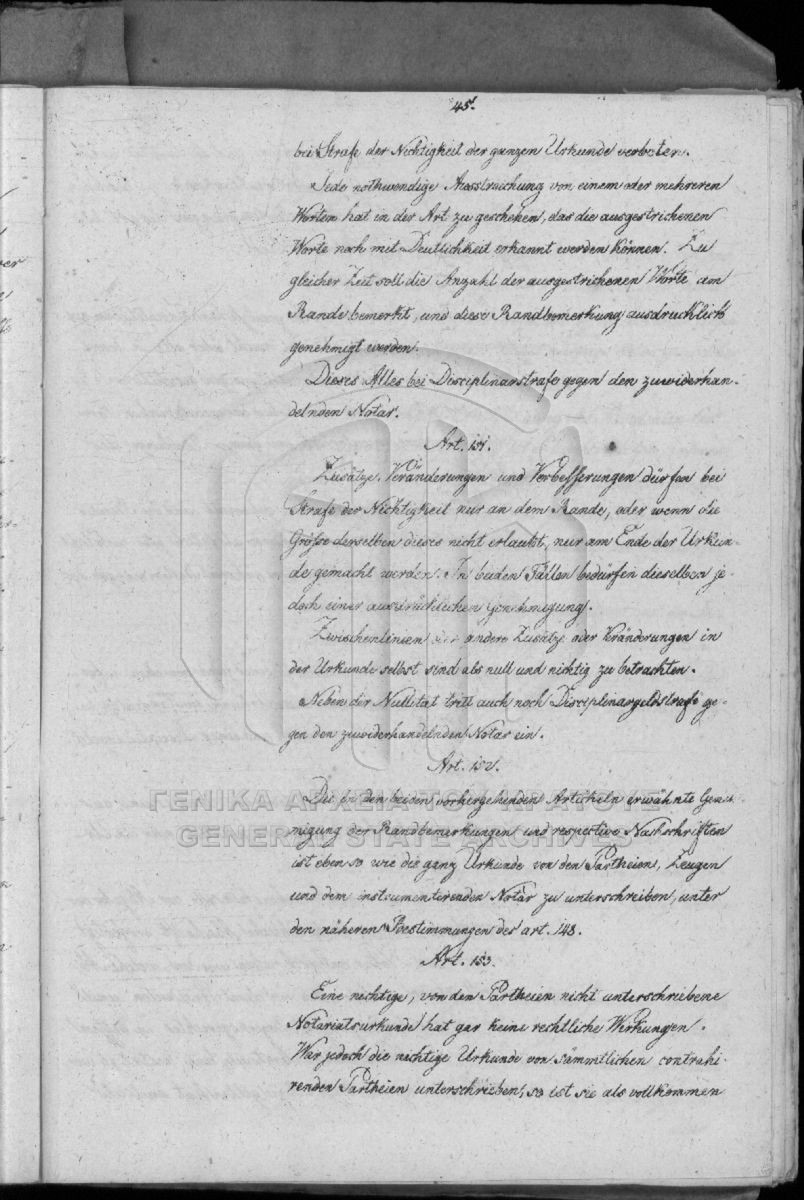 45.
bei Strafe der Nichtigkeit der ganzen Urkunde verboten.
Jede nothwendige Ausstreichung von einem oder mehreren
Worten hat in der Art zu geschehen, das die ausgestrichenen
Worte noch mit Deutlichkeit erkannt werden können. Zu
gleicher Zeit soll die Anzahl der ausgestrichenen Worte am
Rande bemerkt, und diese Randbemerkung ausdrücklich
genehmigt werden.
Dieses Alles bei Disciplinarstrafe gegen den zuwiderhan-
delnden Notar.
Art. 151.
Zusätze, Veränderungen und Verbesserungen dürfen bei
Strafe der Nichtigkeit nur an dem Rande, oder wenn die
Größe derselben dieses nicht erlaubt, nur am Ende der Urkun-
de gemacht werden. In beiden Fällen bedürfen dieselben je-
doch einer ausdrücklichen Genehmigung.
Zwischenlinien andere Zusätze oder Veränderungen in
der Urkunde selbst sind als null und nichtig zu betrachten.
Neben der Nullität tritt auch noch Disciplinargeldstrafe ge-
gen den zuwiderhandelnden Notar ein.
Art. 152.
Die in den beiden vorhergehenden Artickeln erwähnte Geneh-
migung der Randbemerkungen und respective Nachschriften
ist eben so wie die ganz Urkunde von den Partheien, Zeugen
und dem instrumentirenden Notar zu unterschreiben, unter
den näheren Bestimmungen des art. 148.
Art. 153.
Eine nichtige, von den Partheien nicht unterschriebene
Notariatsurkunde hat gar keine rechtliche Wirkungen.
War jedoch die nichtige Urkunde von sämmtlichen contrahi-
renden Partheien unterschrieben, so ist sie als vollkommen
ΓΕΝΙΚΑ ΑΡΧΕΙΑ ΤΟΥ ΚΡΑΤΟΥΣ
GENERAL STATE ARCHIVES